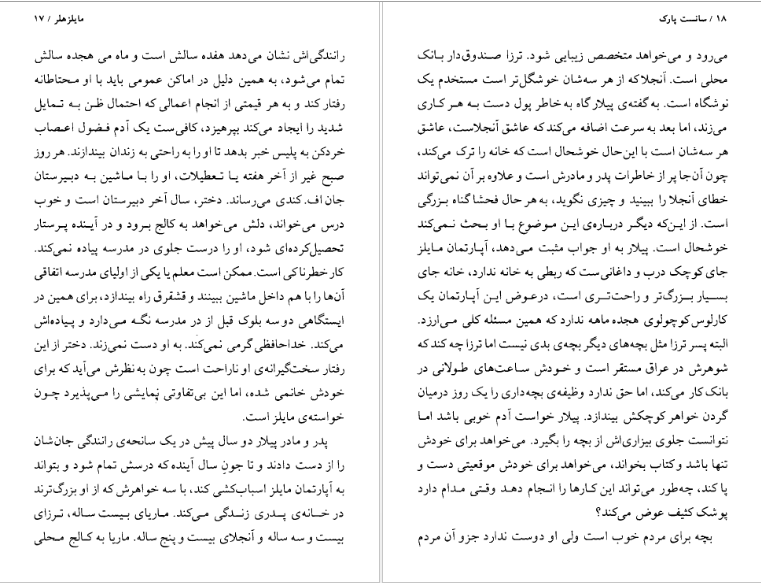 مایلزهلر / ۱۷
رانندگی‌اش نشان می‌دهد هفده سالش است و ماه می هجده سالش
تمام می‌شود، به همین دلیل در اماکن عمومی باید با او محتاطانه
رفتار کند و به هر قیمتی از انجام اعمالی که احتمال ظن به تمایل
شدید را ایجاد می‌کند بپرهیزد، کافی‌ست یک آدم فضول اعصاب
خردکن به پلیس خبر بدهد تا او را به راحتی به زندان بیندازند. هر روز
صبح غیر از آخر هفته یا تعطیلات، او را با ماشین به دبیرستان
جان اف. کندی می‌رساند. دختر، سال آخر دبیرستان است و خوب
درس می‌خواند، دلش می‌خواهد به کالج برود و در آینده پرستار
تحصیل‌کرده‌ای شود، او را درست جلوی در مدرسه پیاده نمی‌کند.
کار خطرناکی است. ممکن است معلم یا یکی از اولیای مدرسه اتفاقی
آن‌ها را با هم داخل ماشین ببینند و قشقرق راه بیندازد، برای همین در
ایستگاهی دو سه بلوک قبل از در مدرسه نگه می‌دارد و پیاده‌اش
می‌کند. خداحافظی گرمی نمی‌کند. به او دست نمی‌زند. دختر از این
رفتار سخت‌گیرانه‌ی او ناراحت است چون به نظرش می‌آید که برای
خودش خانمی شده، اما این بی‌تفاوتی نمایشی را می‌پذیرد چون
خواسته‌ی مایلز است.
پدر و مادر پیلار دو سال پیش در یک سانحه‌ی رانندگی جان‌شان
را از دست دادند و تا جونِ سال آینده که درسش تمام شود و بتواند
به آپارتمان مایلز اسباب‌کشی کند، با سه خواهرش که از او بزرگ‌ترند
در خانه‌ی پدری زندگی می‌کند. ماریای بیست ساله، ترزای
بیست و سه ساله و آنجلای بیست و پنج ساله. ماریا به کالج محلی
۱۸ / سانست پارک
می‌رود و می‌خواهد متخصص زیبایی شود. ترزا صندوق‌دار بانک
محلی است. آنجلا که از هر سه‌شان خوشگل‌تر است مستخدم یک
نوشگاه است. به گفته‌ی پیلار گاه به خاطر پول دست به هر کاری
می‌زند، اما بعد به سرعت اضافه می‌کند که عاشق آنجلاست، عاشق
هر سه‌شان است با این‌حال خوشحال است که خانه را ترک می‌کند،
چون آن‌جا پر از خاطرات پدر و مادرش است و علاوه بر آن نمی‌تواند
خطای آنجلا را ببینید و چیزی نگوید، به هر حال فحشا گناه بزرگی
است. از این‌که دیگر درباره‌ی این موضوع با او بحث نمی‌کند
خوشحال است. پیلار به او جواب مثبت می‌دهد، آپارتمان مایلز
جای کوچک درب و داغانی‌ست که ربطی به خانه ندارد، خانه جای
بسیار بزرگ‌تر و راحت‌تری است، درعوض این آپارتمان یک
کارلوس کوچولوی هجده ماهه ندارد که همین مسئله کلی می‌ارزد.
البته پسر ترزا مثل بچه‌های دیگر بچه‌ی بدی نیست اما ترزا چه کند که
شوهرش در عراق مستقر است و خودش ساعت‌های طولانی در
بانک کار می‌کند، اما حق ندارد وظیفه‌ی بچه‌داری را یک روز درمیان
گردن خواهر کوچکش بیندازد. پیلار خواست آدم خوبی باشد اما
نتوانست جلوی بیزاری‌اش از بچه را بگیرد. می‌خواهد برای خودش
تنها باشد و کتاب بخواند، می‌خواهد برای خودش موقعیتی دست و
پا کند، چه‌طور می‌تواند این کارها را انجام دهد وقتی مدام دارد
پوشک کثیف عوض می‌کند؟
بچه برای مردم خوب است ولی او دوست ندارد جزو آن مردم